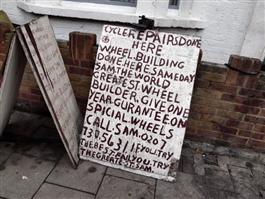 CYCLE REPAIRS DONE
HERE
WHEEL BUILDING
DONE HERE SAME DAY
SAM THE WORLD
GREATEST WHEEL
BUILDER, GIVE ONE
YEAR GURENTEE ON
SPICIAL WHEELS
CALL SAM 0207
IF YOU TRY
THE BEST CAN YOU TRY
THE GREATEST SAM